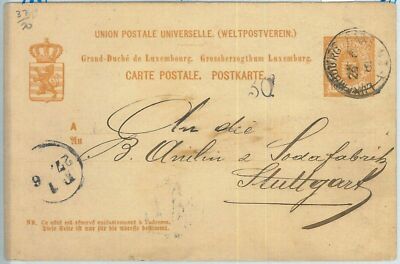 UNION POSTALE UNIVERSELLE. (WELTPOSTVEREIN.)
Grand-Duché de Luxembourg. Grossherzogthum Luxemburg.
CARTE POSTALE. POSTKARTE.
50
A
An
An die
B. Anilin & Sodafabrik
Stuttgart
NB. Ce côté est réservé exclusivement à l'adresse.
Diese Seite ist nur für die Adresse bestimmt.